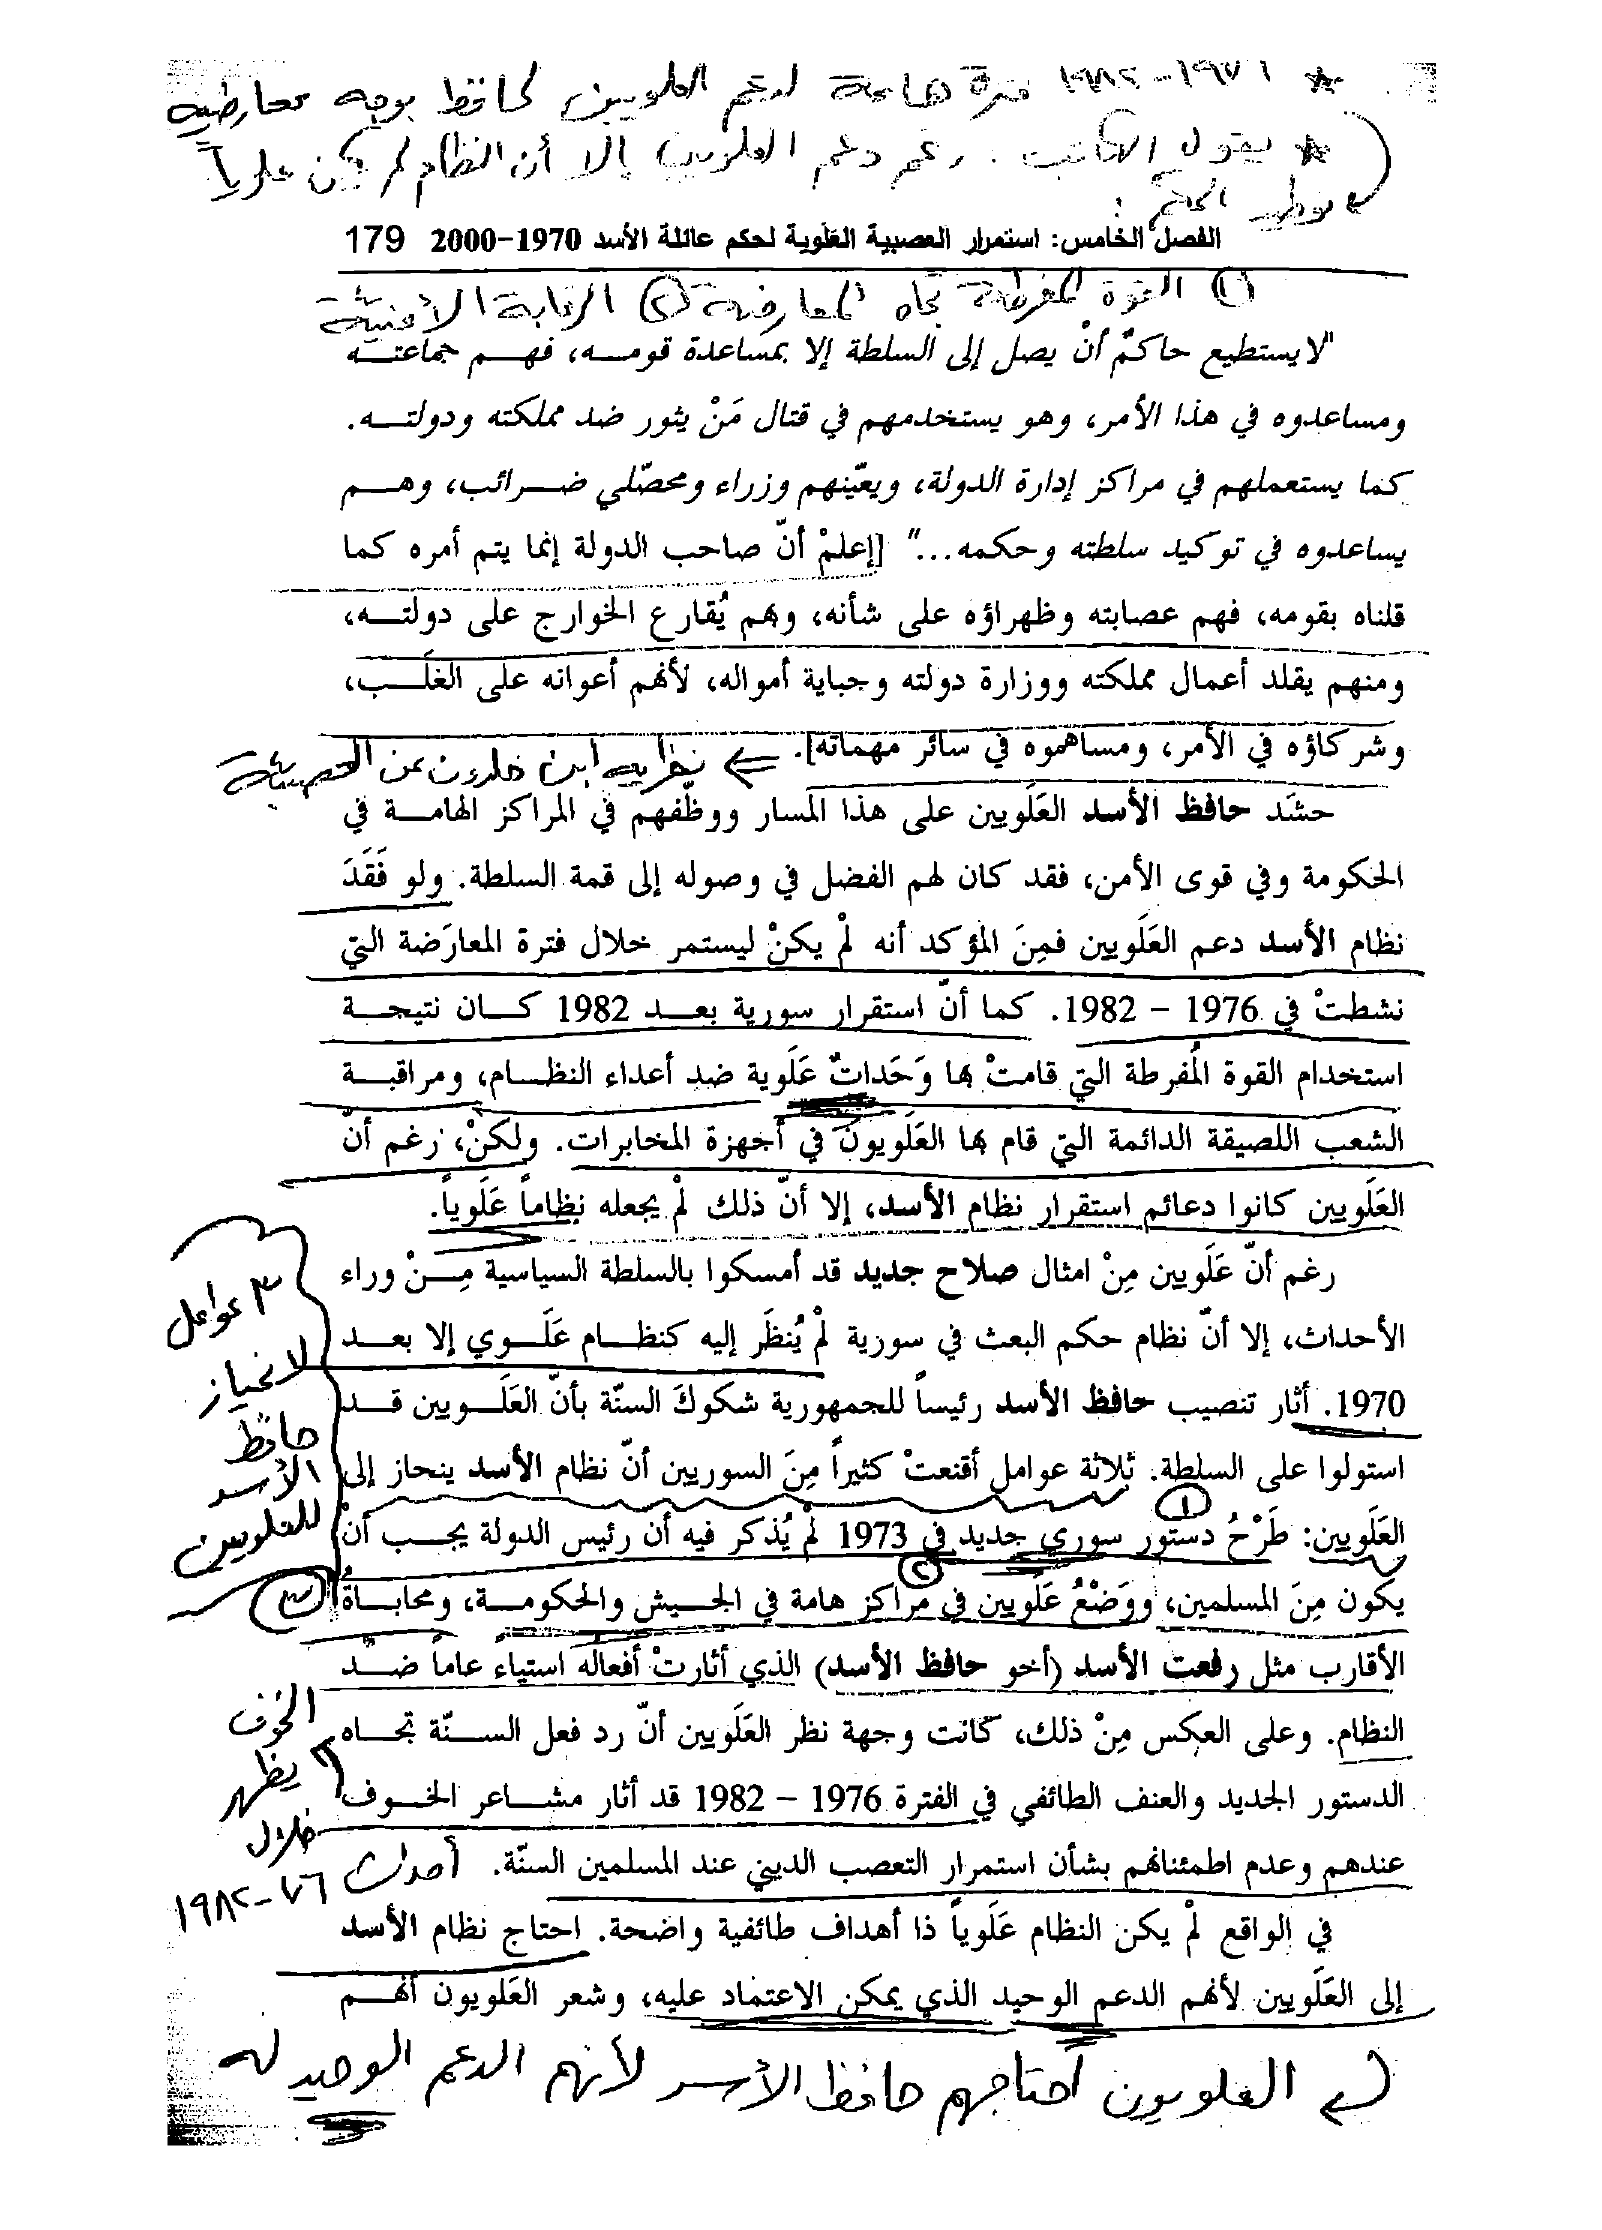 ★ ١٩٧٦-١٩٨٢ فترة هامة لدعم العلويين لحافظ بوجه معارضيه
★ يقول الكاتب: رغم دعم العلويين إلا أن النظام لم يكن علوياً
الحكم:
الفصل الخامس: استمرار العصبية العَلَوية لحكم عائلة الأسد 1970-2000 179
① القوة المفرطة تجاه المعارضة ② الرقابة الأمنية
"لا يستطيع حاكمٌ أنْ يصل إلى السلطة إلا بمساعدة قومـه، فهـم جماعتـه
ومساعدوه في هذا الأمر، وهو يستخدمهم في قتال مَنْ يثور ضد مملكته ودولتـه.
كما يستعملهم في مراكز إدارة الدولة، ويعيّنهم وزراء ومحصّلي ضـرائب، وهـم
يساعدوه في توكيد سلطته وحكمه..." [إعلمْ أنّ صاحب الدولة إنما يتم أمره كما
قلناه بقومه، فهم عصابته وظهراؤه على شأنه، وبهم يُقارع الخوارج على دولتـه،
ومنهم يقلد أعمال مملكته ووزارة دولته وجباية أمواله، لأنهم أعوانه على الغلَـب،
وشركاؤه في الأمر، ومساهموه في سائر مهماته]. ⇐ نظرية ابن خلدون عن العصبية
حشَد حافظ الأسد العَلَويين على هذا المسار ووظّفهم في المراكز الهامـة في
الحكومة وفي قوى الأمن، فقد كان لهم الفضل في وصوله إلى قمة السلطة. ولو فَقَدَ
نظام الأسد دعم العَلَويين فمِنَ المؤكد أنه لمْ يكنْ ليستمر خلال فترة المعارَضة التي
نشطتْ في 1976 – 1982. كما أنّ استقرار سورية بعـد 1982 كـان نتيجـة
استخدام القوة المُفرطة التي قامتْ بها وَحَداتٌ عَلَوية ضد أعداء النظـام، ومراقبـة
الشعب اللصيقة الدائمة التي قام بها العَلَويون في أجهزة المخابرات. ولكنْ، رغم أنّ
العَلَويين كانوا دعائم استقرار نظام الأسد، إلا أنّ ذلك لمْ يجعله نظاماً عَلَوياً.
رغم أنّ عَلَويين مِنْ امثال صلاح جديد قد أمسكوا بالسلطة السياسية مِـنْ وراء
الأحداث، إلا أنّ نظام حكم البعث في سورية لمْ يُنظَر إليه كنظـام عَلَـوي إلا بعـد
1970. أثار تنصيب حافظ الأسد رئيساً للجمهورية شكوكَ السنّة بأنّ العَلَـويين قـد
استولوا على السلطة. ثلاثة عوامل أقنعتْ كثيراً مِنَ السوريين أنّ نظام الأسد ينحاز إلى
①
العَلَويين: طَرْحُ دستور سوري جديد في 1973 لمْ يُذكر فيه أن رئيس الدولة يجـب أنْ
②
يكون مِنَ المسلمين، ووَضْعُ عَلَويين في مراكز هامة في الجـيش والحكومـة، ومحابـاةُ ③
الأقارب مثل رفعت الأسد (أخو حافظ الأسد) الذي أثارتْ أفعاله استياء عاماً ضـدّ
النظام. وعلى العكس مِنْ ذلك، كانت وجهة نظر العَلَويين أنّ رد فعل السـنّة تجـاه
الدستور الجديد والعنف الطائفي في الفترة 1976 – 1982 قد أثار مشـاعر الخـوف
عندهم وعدم اطمئنانهم بشأن استمرار التعصب الديني عند المسلمين السنّة.
في الواقع لمْ يكن النظام عَلَوياً ذا أهداف طائفية واضحة. احتاج نظام الأسد
إلى العَلَويين لأنهم الدعم الوحيد الذي يمكن الاعتماد عليه، وشعر العَلَويون أنهـم
٣ عوامل
لانحياز
حافظ
الأسد
للعلويين
الخوف
يظهر
خلال
أحداث ٧٦-١٩٨٢
العلويون احتاجهم حافظ الأسد لأنهم الدعم الوحيد له